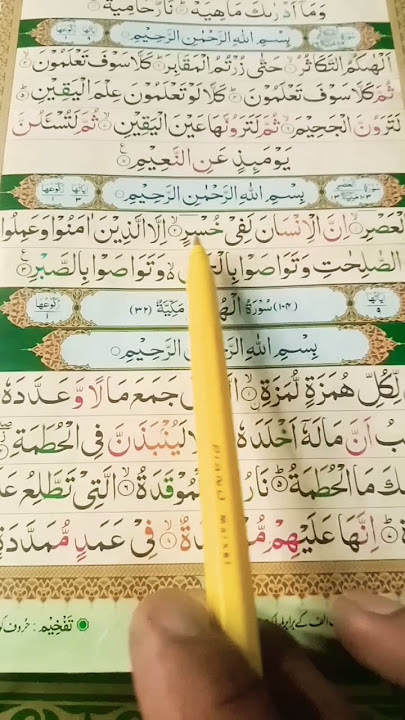 وَمَآ اَدْرٰىكَ مَاهِيَهْ ۞ نَارٌ حَامِيَةٌ
بِسْمِ اللهِ الرَّحْمٰنِ الرَّحِيْمِ
اَلْهٰىكُمُ التَّكَاثُرُ ۙ حَتّٰى زُرْتُمُ الْمَقَابِرَ ؕ كَلَّا سَوْفَ تَعْلَمُوْنَ
ثُمَّ كَلَّا سَوْفَ تَعْلَمُوْنَ ؕ كَلَّا لَوْ تَعْلَمُوْنَ عِلْمَ الْيَقِيْنِ
لَتَرَوُنَّ الْجَحِيْمَ ۙ ثُمَّ لَتَرَوُنَّهَا عَيْنَ الْيَقِيْنِ ۙ ثُمَّ لَتُسْئَلُنَّ
يَوْمَئِذٍ عَنِ النَّعِيْمِ
بِسْمِ اللهِ الرَّحْمٰنِ الرَّحِيْمِ
الْعَصْرِ ۙ اِنَّ الْاِنْسَانَ لَفِيْ خُسْرٍ ۙ اِلَّا الَّذِيْنَ اٰمَنُوْا وَعَمِلُوا
الصّٰلِحٰتِ وَتَوَاصَوْا وَتَوَاصَوْا بِالصَّبْرِ
(١٠٤) سُوْرَةُ مَكِّيَّةٌ (٣٢)
اٰيَاتُهَا ٩
رُكُوْعُهَا ١
بِسْمِ اللهِ الرَّحِيْمِ
لِّكُلِّ هُمَزَةٍ لُّمَزَةٍ جَمَعَ مَالًا وَّعَدَّدَهٗ
اَنَّ مَالَهٗٓ اَخْلَدَهٗ لَيُنْۢبَذَنَّ فِي الْحُطَمَةِ
مَا الْحُطَمَةُ ؕ نَارُ الْمُوْقَدَةُ ۙ الَّتِيْ تَطَّلِعُ
اِنَّهَا عَلَيْهِمْ فِيْ عَمَدٍ مُّمَدَّدَةٍ
تفخیم : حروف کو
PIANO